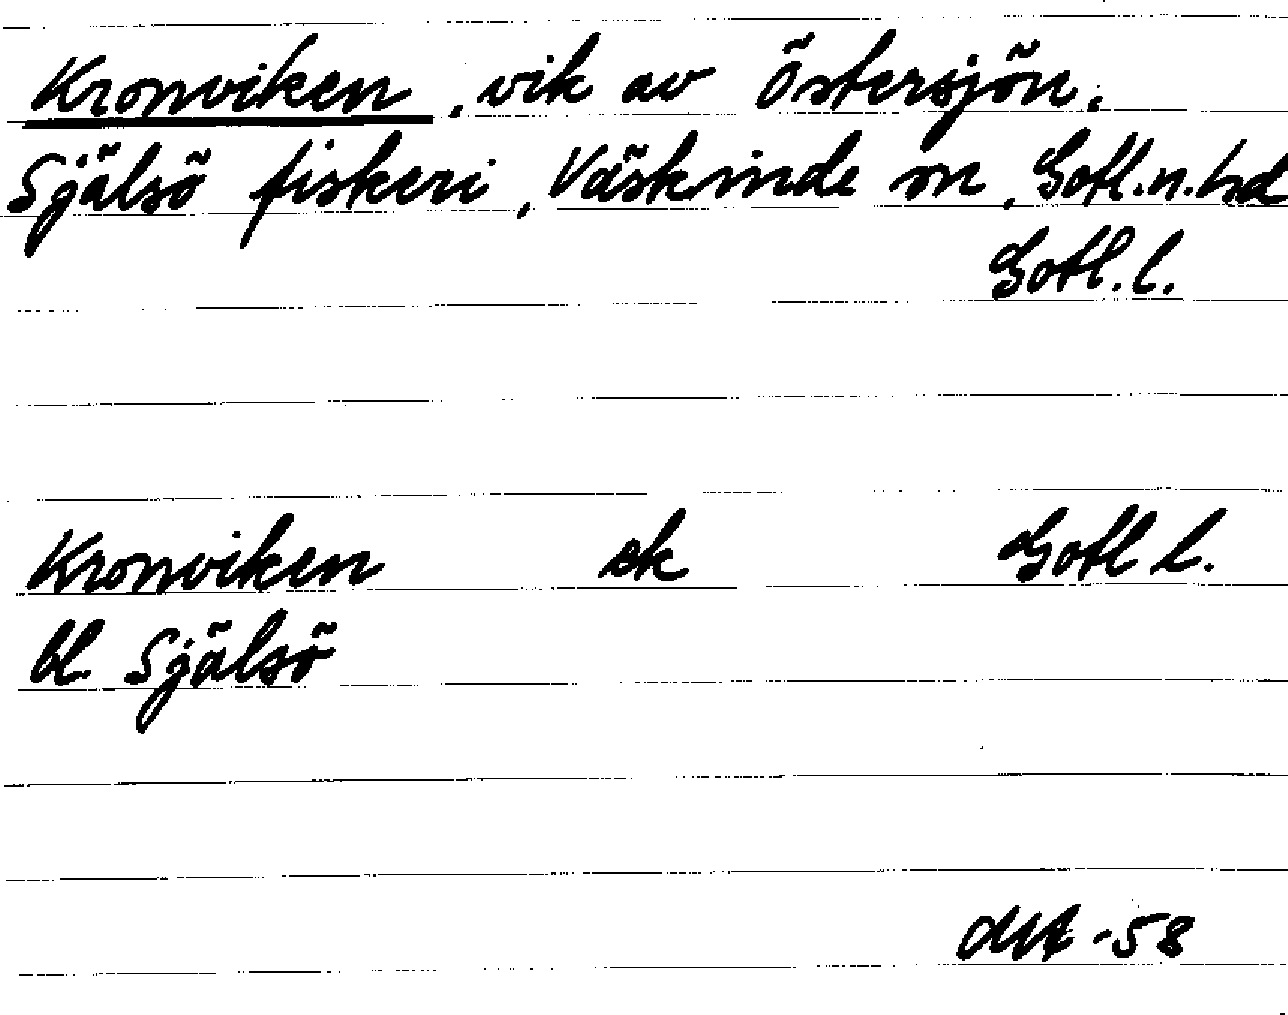 Kronviken, vik av Östersjön,
Själsö fiskeri, Väskinde sn, Gotl.n.hd
Gotl.l.
Kronviken ek Gotl l.
bl. Själsö
-58